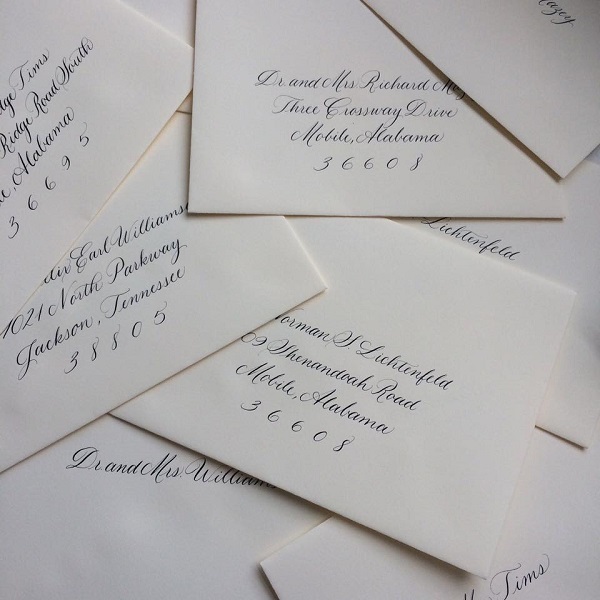 Ridge Road South
Alabama
36695
Dr and Mrs Richard
Three Crossway Drive
Mobile, Alabama
36608
Earl Williams
1021 North Parkway
Jackson, Tennessee
38805
Lichtenfeld
Norman S Lichtenfeld
09 Shenandoah Road
Mobile, Alabama
36608
Dr and Mrs. William
Tims